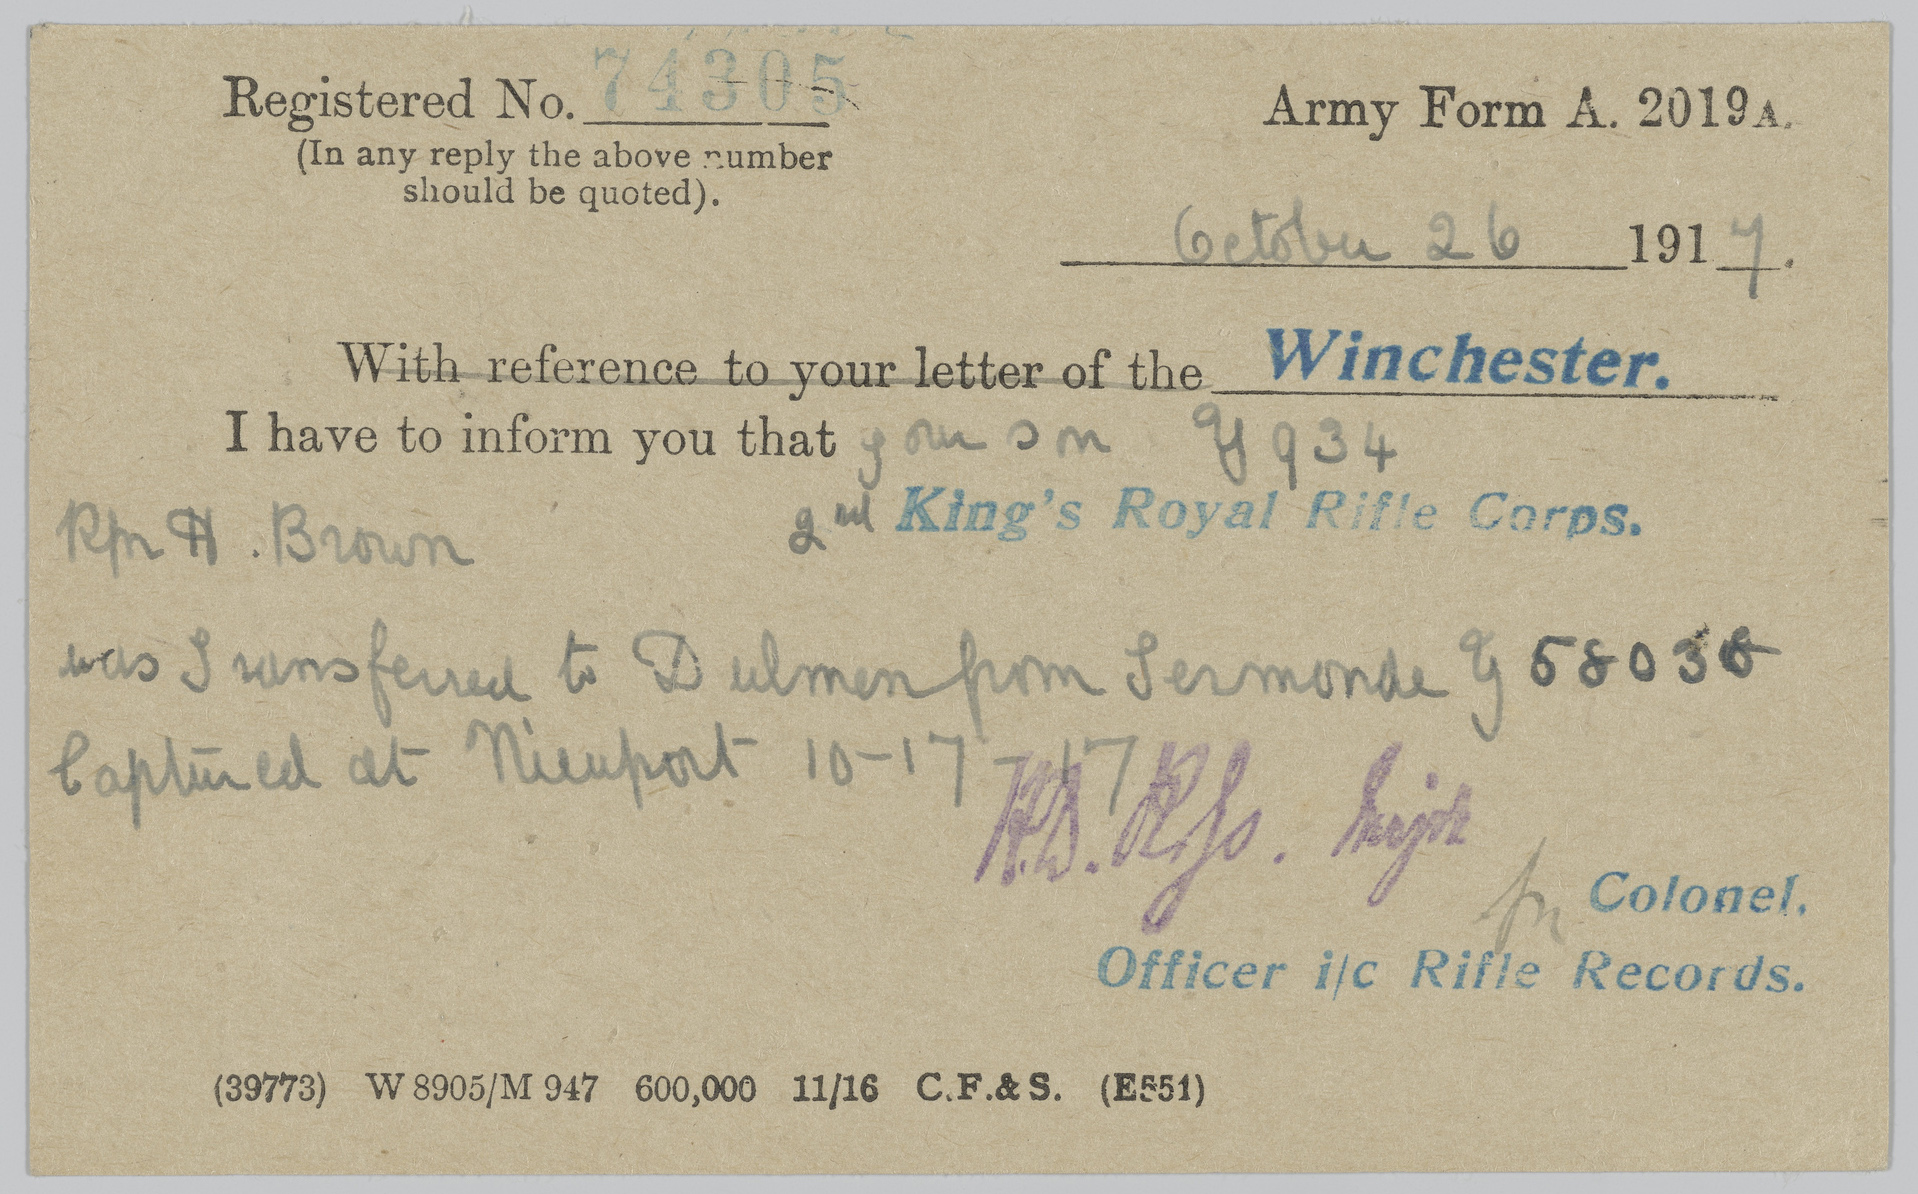 Registered No. 74305
(In any reply the above number
should be quoted).
Army Form A. 2019A.
October 26 1917.
With reference to your letter of the Winchester.
I have to inform you that your son Y 934
Rfn H. Brown 2nd King's Royal Rifle Corps.
was Transferred to Dulmen from Termonde G 5803
Captured at Nieuport 10-17-17
Major
for Colonel.
Officer i/c Rifle Records.
(39773) W 8905/M 947 600,000 11/16 C.F.& S. (E551)